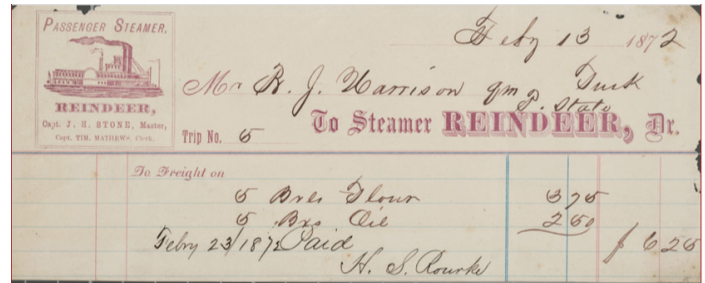 PASSENGER STEAMER.
REINDEER,
Capt. J. H. STONE, Master,
Capt. TIM. MATHEWS, Clerk.
Feby 13 1872
Mr R. J. Harrison
P. State
Trip No. 5 To Steamer REINDEER, Dr.
To Freight on
5 Brls Flour 3 75
5 Bxs Oil 2 50
Febry 23/1872 Paid $ 6 25
H. S. Rourke